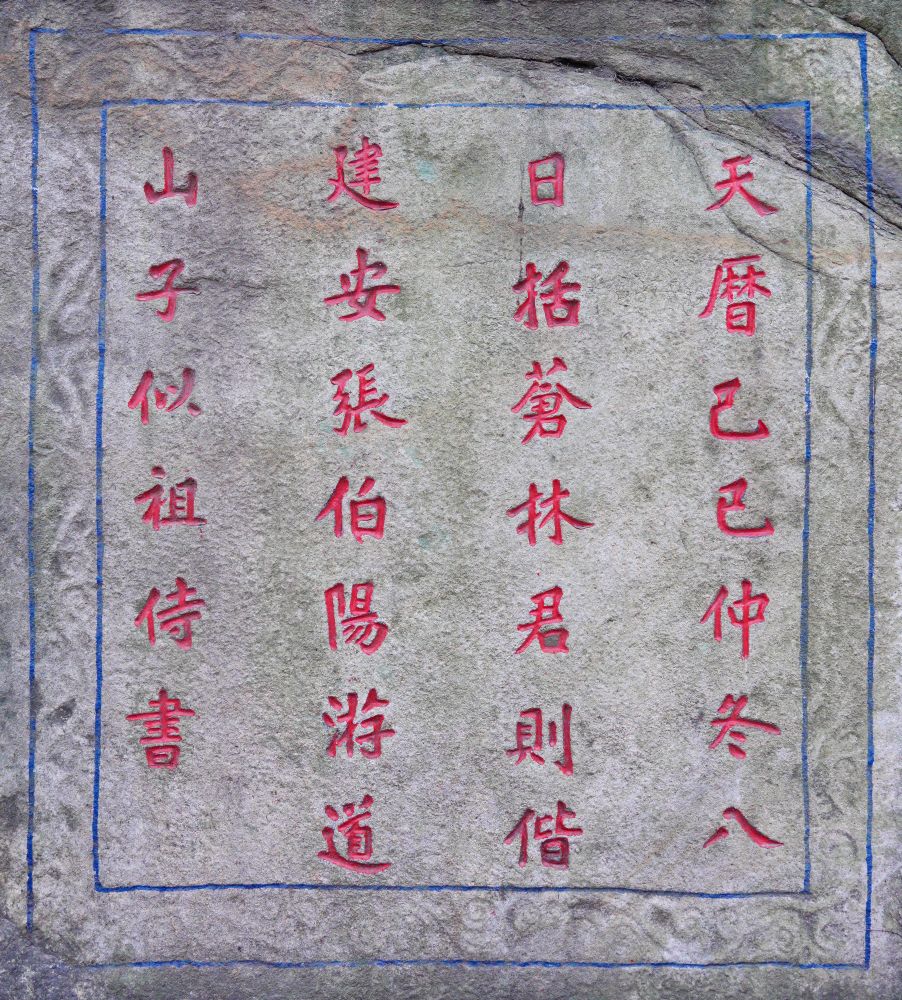 天曆己巳仲冬八
日括蒼林君則偕
建安張伯陽游道
山子似祖侍書